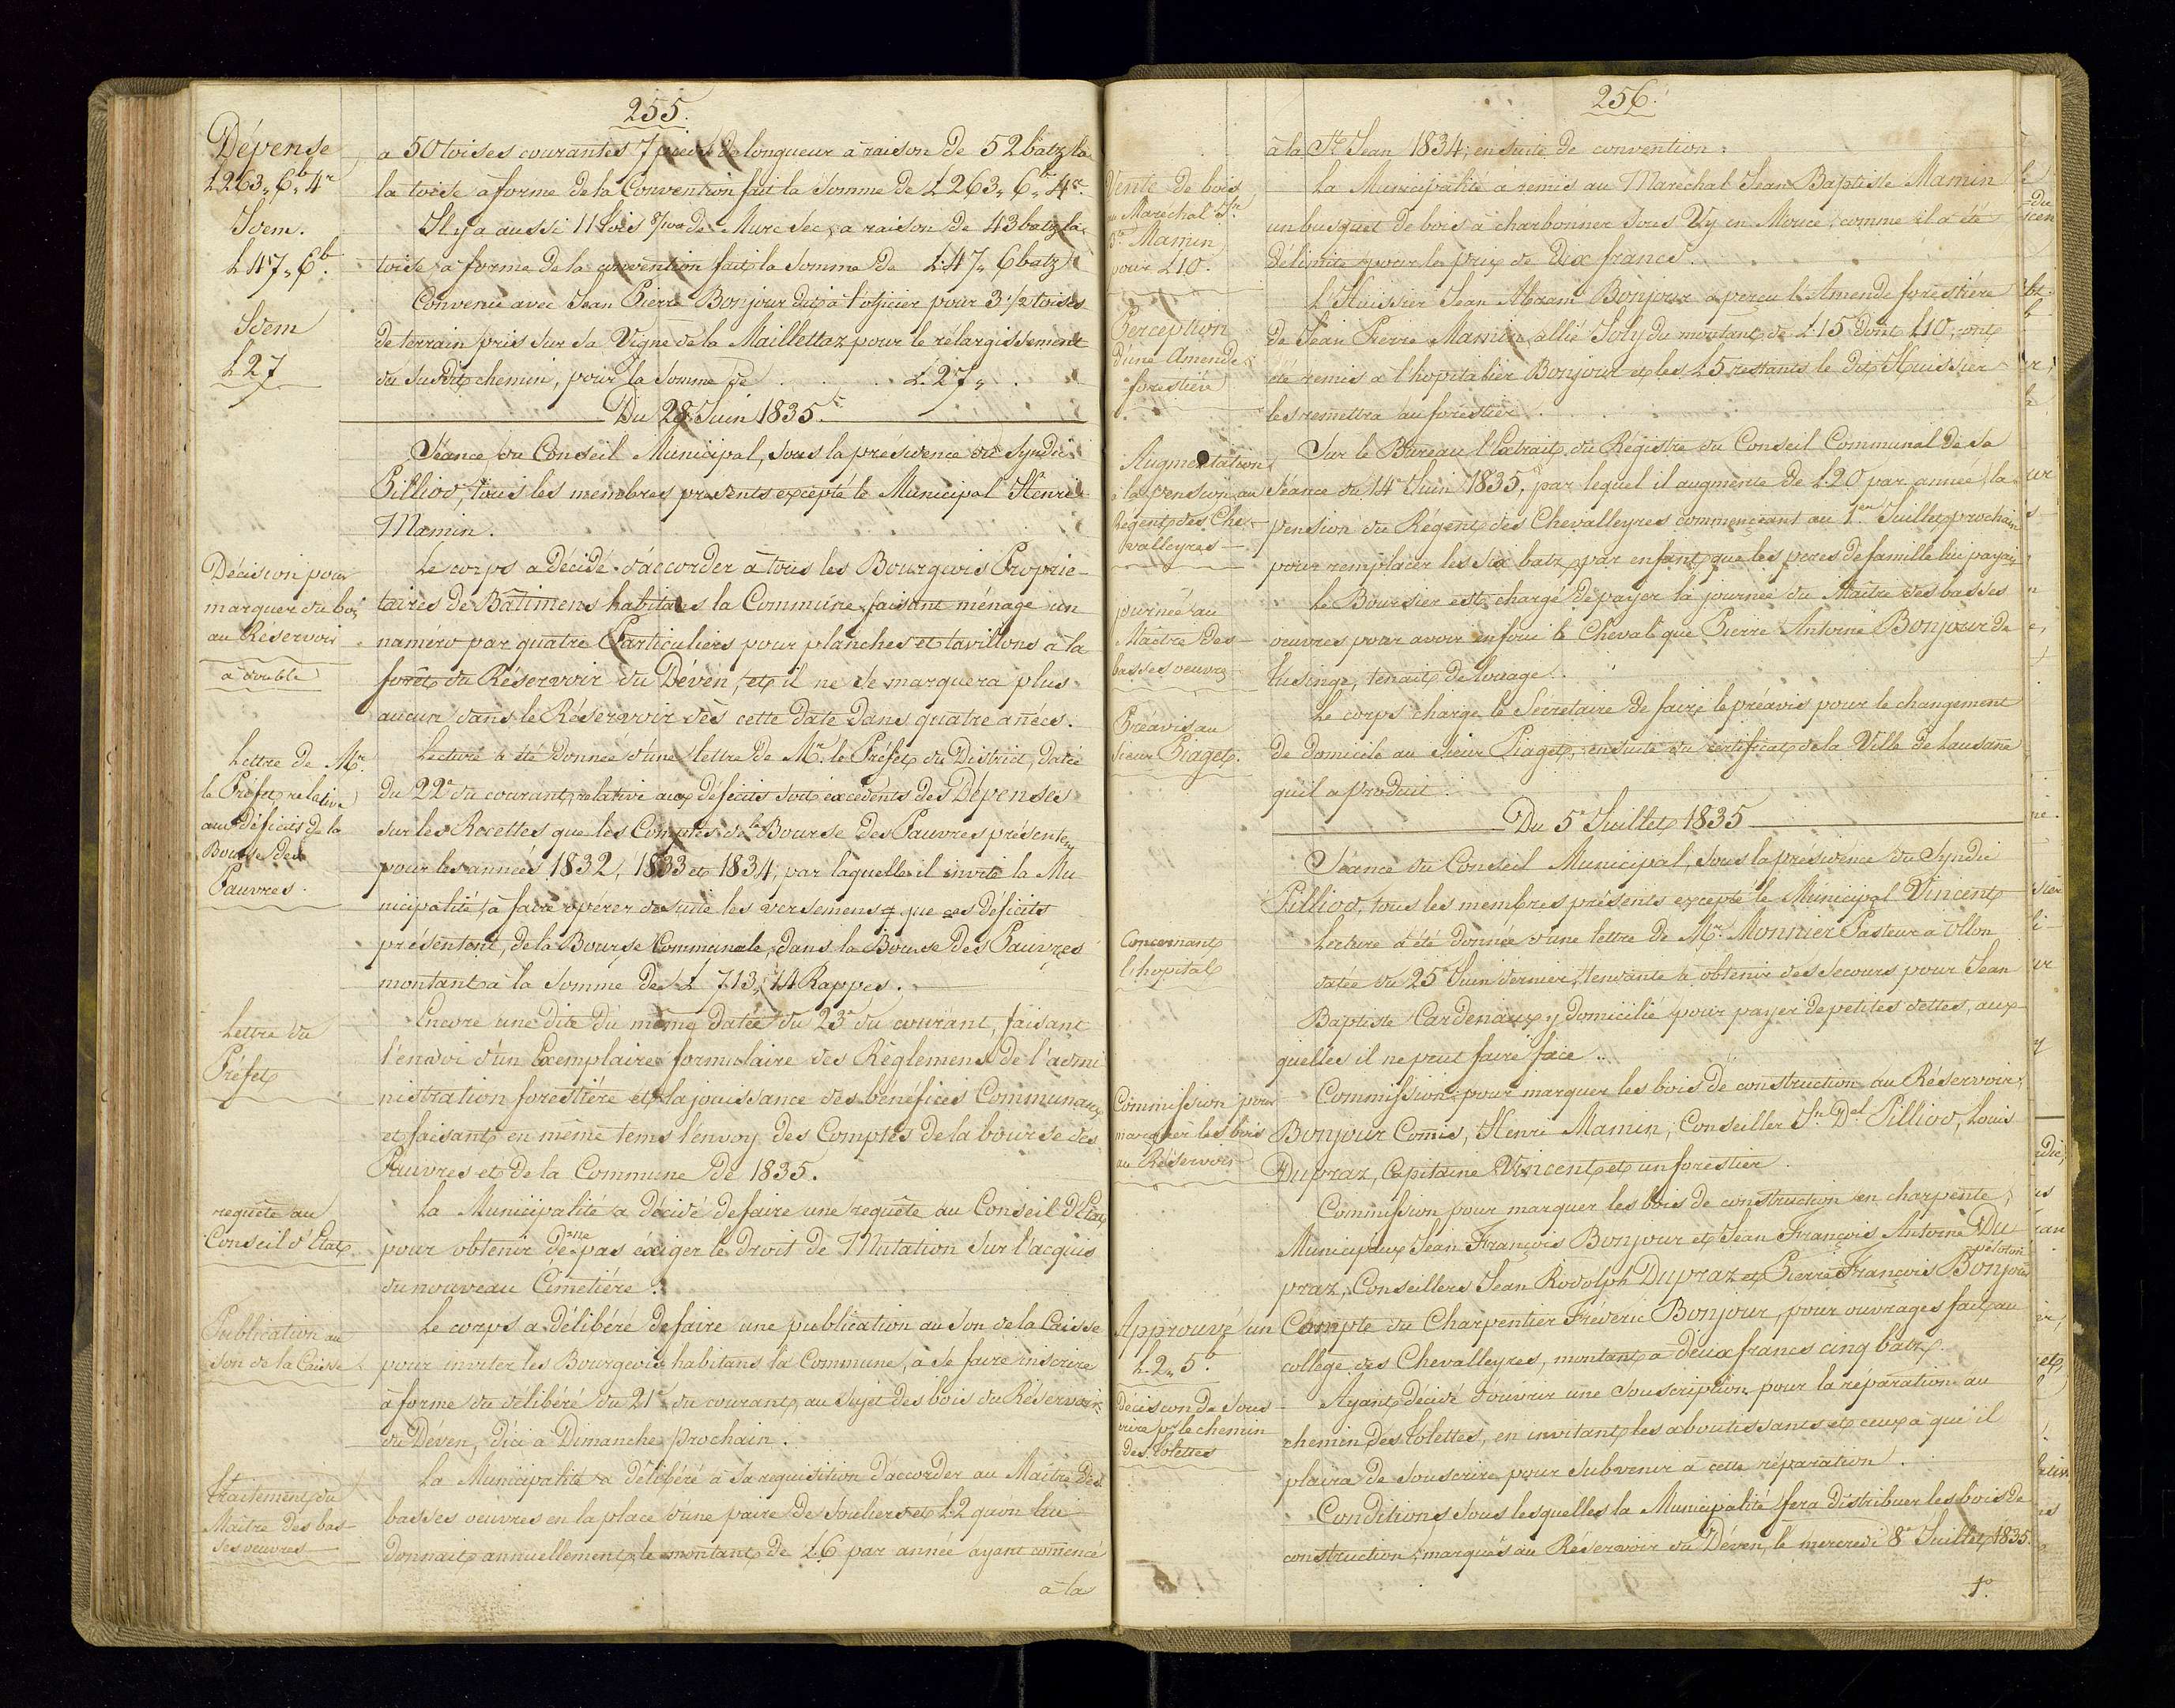 255.
Dépense
L 263„ 6b„ 4r
Idem.
L 47„ 6b.
Idem
L 27
a 50 toises courantes 7 pieds de longueur à raison de 52 batz la
la toise à forme de la Convention fait la somme de L 263„ 6b„ 4r.
Il y a aussi 11 tois de Mure sec, a raison de 43 batz la
toise, à forme de la convention fait la somme de L 47„ 6 batz
Convenu avec Jean Pierre Bonjour dit à l'officier pour 3 1/2 toises
de terrain pris sur sa Vigne de la Maillettaz pour le rélargissement
du susdit chemin, pour la somme de . . . . L 27„ .
Du 28e Juin 1835.
Séance du Conseil Municipal, sous la présidence du Syndic
Pilliod, tous les membres présents excepté le Municipal Henri
Mamin.
Décision pour
marquer du boi
au Réservoir
à double
Le corps a décidé d'accorder à tous les Bourgeois Proprie-
taires de Bâtimens habitales la Commune faisant ménage un
naméro par quatre Particuliers pour planches et tavillons à la
forêt du Réservoir du Déven, et il ne se marquera plus
aucun dans le Réservoir dès cette date dans quatre anées.
Lettre de Mr.
le Préfet relative
aux Déficits de la
Bourse des
Pauvres.
Lecture à été donnée d'une lettre de Mr. le Préfet du District, datée
du 22e du courant, relative aux déficits soit éxcédents des Dépenses
sur les Recettes que les Comptes de la Bourse des Pauvres présenten
pour les années 1832, 1833 et 1834, par laquelle il invite la Mu-
nicipalité, à faire opérer de suite les versemens que ces déficits
présentent, de la Bourse Communale, dans la Bourse des Pauvres
montant à la somme de L 713„ 14 Rappes.
Lettre du
Préfet
Encore une dite du même datée du 23e du courant, faisant
l'envoi d'un Exemplaire formulaire des Règlemens de l'admi
nistration forestière et la jouissance des bénéfices Communaux
et faisant en même tems l'envoy des Comptes de la bourse des
Pauvres et de la Commune de 1835.
requête au
Conseil d'Etat
La Municipalité a décidé de faire une requête au Conseil d'Etat
pour obtenir de ne pas éxiger le droit de Mutation sur l'acquis
du nouveau Cimetière.
Publication au
son de la Caisse
Le corps a délibéré de faire une publication au son de la Caisse
pour inviter les Bourgeois habitans la Commune, a se faire inscrire
à forme du délibéré du 21e du courant, au sujet des bois du Réservoir
du Déven, dici à Dimanche prochain.
traitement du
Maître des bas-
ses oeuvres
La Municipalité a délibéré à sa requisition d'accorder au Maître des
basses oeuvres en la place d'une paire de souliers et L2 qu'on lui
donnait annuellement, le montant de L6 par année ayant comencé
à la
256.
à la St Jean 1834, en suite de convention.
Vente de bois
au Maréchal Jn
Bte Mamin
pour L10.
La Municipalité a remis au Maréchal Jean Baptiste Mamin
un busquet de bois à charbonner sous Vy en Mouce, comme il a été
délimité pour le prix de Dix francs.
Perception
d'une Amende
forestière
L'Huissier Jean Abram Bonjour a perçu l'Amende forestière
de Jean Pierre Mamin allié Joly du montant de L15 dont L10, ont
été remis à l'hopitalier Bonjour et les L5 restants le dit Huissier
les remettra au forestier.
Augmentation
à la pension au
Régent des Che-
valleyres
Sur le Bureau l'Extrait du Régistre du Conseil Communal de sa
séance du 14e Juin 1835, par lequel il augmente de L20 par année, la
pension du Régent des Chevalleyres commençant au 1er Juillet prochain
pour remplacer les six batz par enfant que les peres de famille lui payai
journée au
Maître des
basses oeuvres
Le Boursier est chargé de payer la journée du Maître des basses
oeuvres pour avoir enfoui le Cheval que Pierre Antoine Bonjour de
tusinge, tenait de louage.
Préavis au
Sieur Piaget.
Le corps charge le Secrétaire de faire le préavis pour le changement
de domicile au Sieur Piaget, en suite du certificat de la Ville de Lausane
qu'il a produit.
Du 5e Juillet 1835
Séance du Conseil Municipal, sous la présidence du Syndic
Pilliod, tous les membres présents excepté le Municipal Vincent
Concernant
l'hopital
Lecture à été donnée d'une lettre de Mr. Monnier Pasteur à Ollon
datée du 25e Juin dernier, tendante à obtenir des secours pour Jean
Baptiste Cardenaux y domicilié pour payer de petites dettes, aux
quelles il ne peut faire face.
Commission pour
marquer les bois
au Réservoir
Commission pour marquer les bois de construction au Réservoir,
Bonjour Comis, Henri Mamin, Conseiller Jn Del Pilliod, Louis
Dupraz, Capitaine Vincent et un forestier.
Commission pour marquer les bois de construction en charpente,
Municipaux Jean François Bonjour et Jean François Antoine Du
praz, Conseillers Jean Rodolph Dupraz et Pierre François Bonjour
péloton
Approuvé un
L 2„ 5b.
Compte du Charpentier Fréderic Bonjour, pour ouvrages fait au
collège des Chevalleyres, montant a deux francs cinq batz.
Décision de sous
crire pr le chemin
des Tolettes
Ayant décidé d'ouvrir une souscription pour la réparation au
chemin des Tolettes, en invitant les aboutissants et ceux à qui il
plaira de souscrire pour subvenir à cette réparation.
Conditions sous lesquelles la Municipalité fera distribuer les bois de
construction, marqués au Réservoir du Déven, le mercredi 8e Juillet 1835.
1o